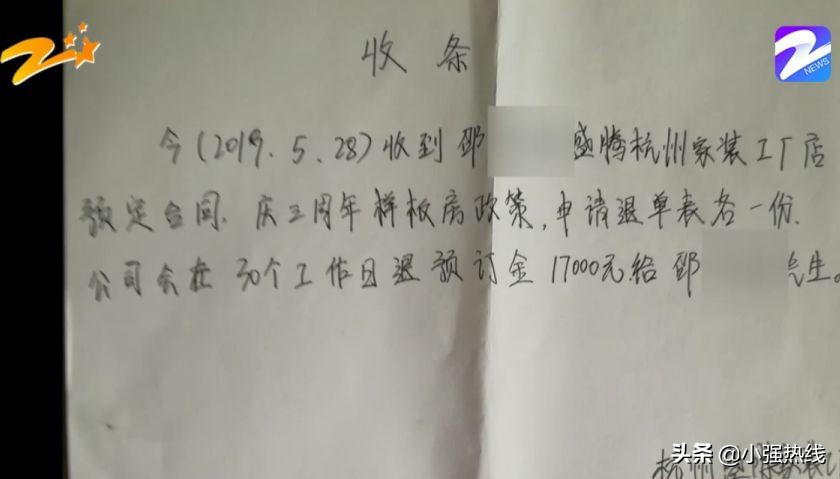 收条
今(2019.5.28)收到邵 盛腾杭州家装工厂店
预定合同、庆三周年样板房政策,申请退单表各一份.
公司会在30个工作日退预订金17000元给邵 先生。
杭州盛腾
头条 @小强热线
NEWS